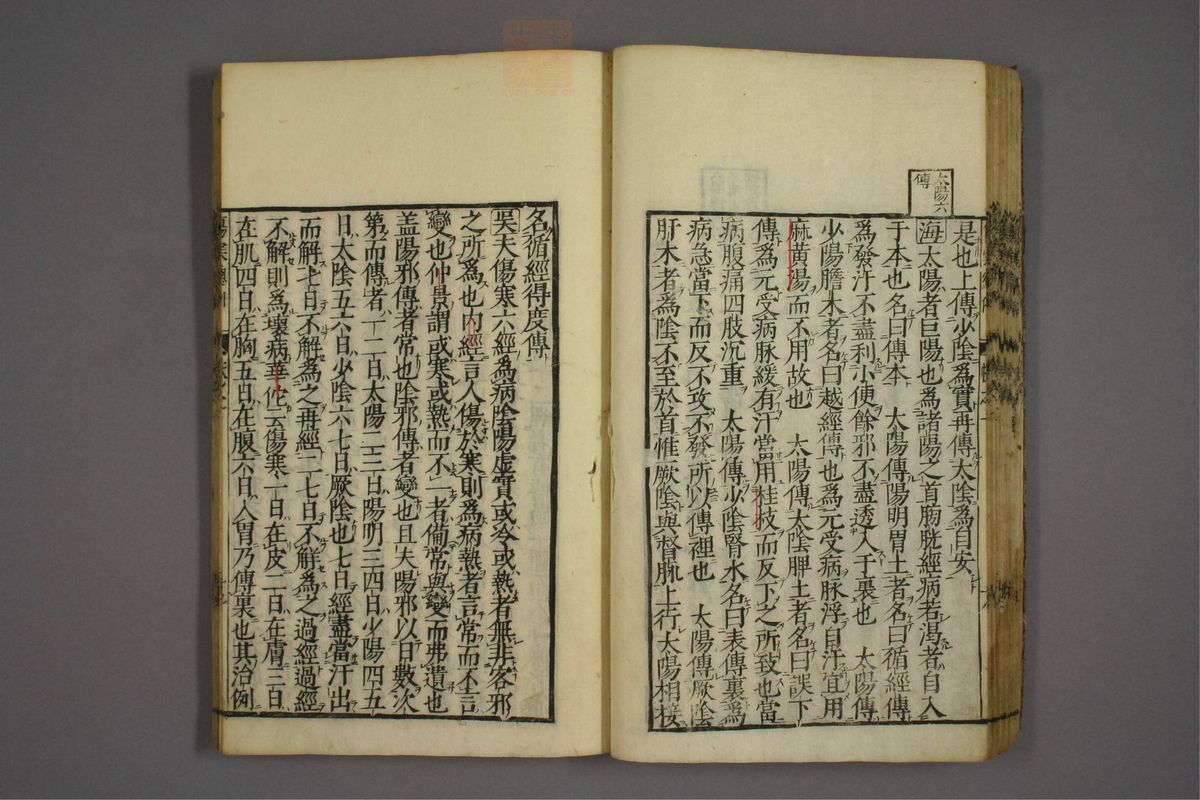 太陽六
傳
是也上傳少陰爲實再傳太陰爲自安
海太陽者巨陽也爲諸陽之首膀胱經病若渴者自入
于本也名曰傳本 太陽傳陽明胃土者名曰循經傳
爲發汗不盡利小便餘邪不盡透入于裏也 太陽傳
少陽膽木者名曰越經傳也爲元受病脉浮自汗宜用
麻黄湯而不用故也 太陽傳太陰脾土者名曰誤下
傳爲元受病脉緩有汗當用桂枝而反下之所致也當
病腹痛四肢沉重 太陽傳少陰腎水名曰表傳裏爲
病急當下而反不攻不發所以傳裡也 太陽傳厥陰
肝木者爲陰不至於首惟厥陰與督脉上行太陽相接
名循經得度傳
吳夫傷寒六經爲病陰陽虛實或冷或熱者無非客邪
之所爲也内經言人傷於寒則爲病熱者言常而不言
變也仲景謂或寒或熱而不一者偹常與變而弗遺也
盖陽邪傳者常也陰邪傳者變也且夫陽邪以日數次
第而傳者一二日太陽二三日陽明三四日少陽四五
日太陰五六日少陰六七日厥陰也七日經盡當汗出
而解七日不解爲之再經二七日不解爲之過經過經
不解則爲壞病華佗云傷寒一日在皮二日在膚三日
在肌四日在胸五日在腹六日入胃乃傳裏也其治例